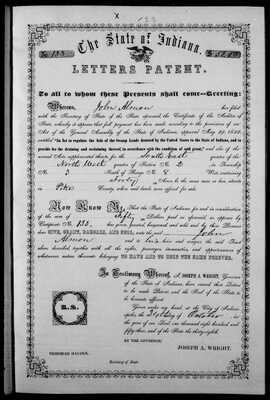 The State of Indiana.
LETTERS PATENT.
To all to whom these Presents shall come—Greeting:
Whereas, John Almon has filed
with the Secretary of State of the State aforesaid the Certificate of the Auditor of
State, whereby it appears that full payment has been made according to the provisions of an
Act of the General Assembly of the State of Indiana, approved May 29, 1852,
entitled "An Act to regulate the Sale of the Swamp Lands donated by the United States to the State of Indiana, and to
provide for the draining and reclaiming thereof in accordance with the condition of said grant," and also of the
several Acts supplemental thereto, for the South East quarter of the
North West quarter of Section No. 2 in Township
No. 3 South of Range No. 8 West containing
Forty Acres be the same more or less, situate
in Pike County, when said lands were offered for sale.
Now Know Ye, That the State of Indiana for and in consideration
of the sum of Fifty Dollars paid as aforesaid, as appears by
Certificate No. 133, has given, granted, bargained and sold, and by these Presents
does GIVE, GRANT, BARGAIN, AND SELL, unto the said John
Almon and to his heirs and assigns the said Tract
above described together with all the rights, privileges, immunities, and appurtenances of
whatsoever nature thereunto belonging TO HAVE AND TO HOLD THE SAME FOREVER.
In Testimony Whereof, I, JOSEPH A. WRIGHT, Governor
of the State of Indiana, have caused these Letters
to be made Patent and the Seal of the State to
be hereunto affixed.
Given under my hand, at the City of Indianapolis, the 31st day of October in
the year of our Lord, one thousand eight hundred and
fifty three, and of the State the thirty-eighth.
L. S.
BY THE GOVERNOR:
JOSEPH A. WRIGHT.
NEHEMIAH HAYDEN,
Secretary of State